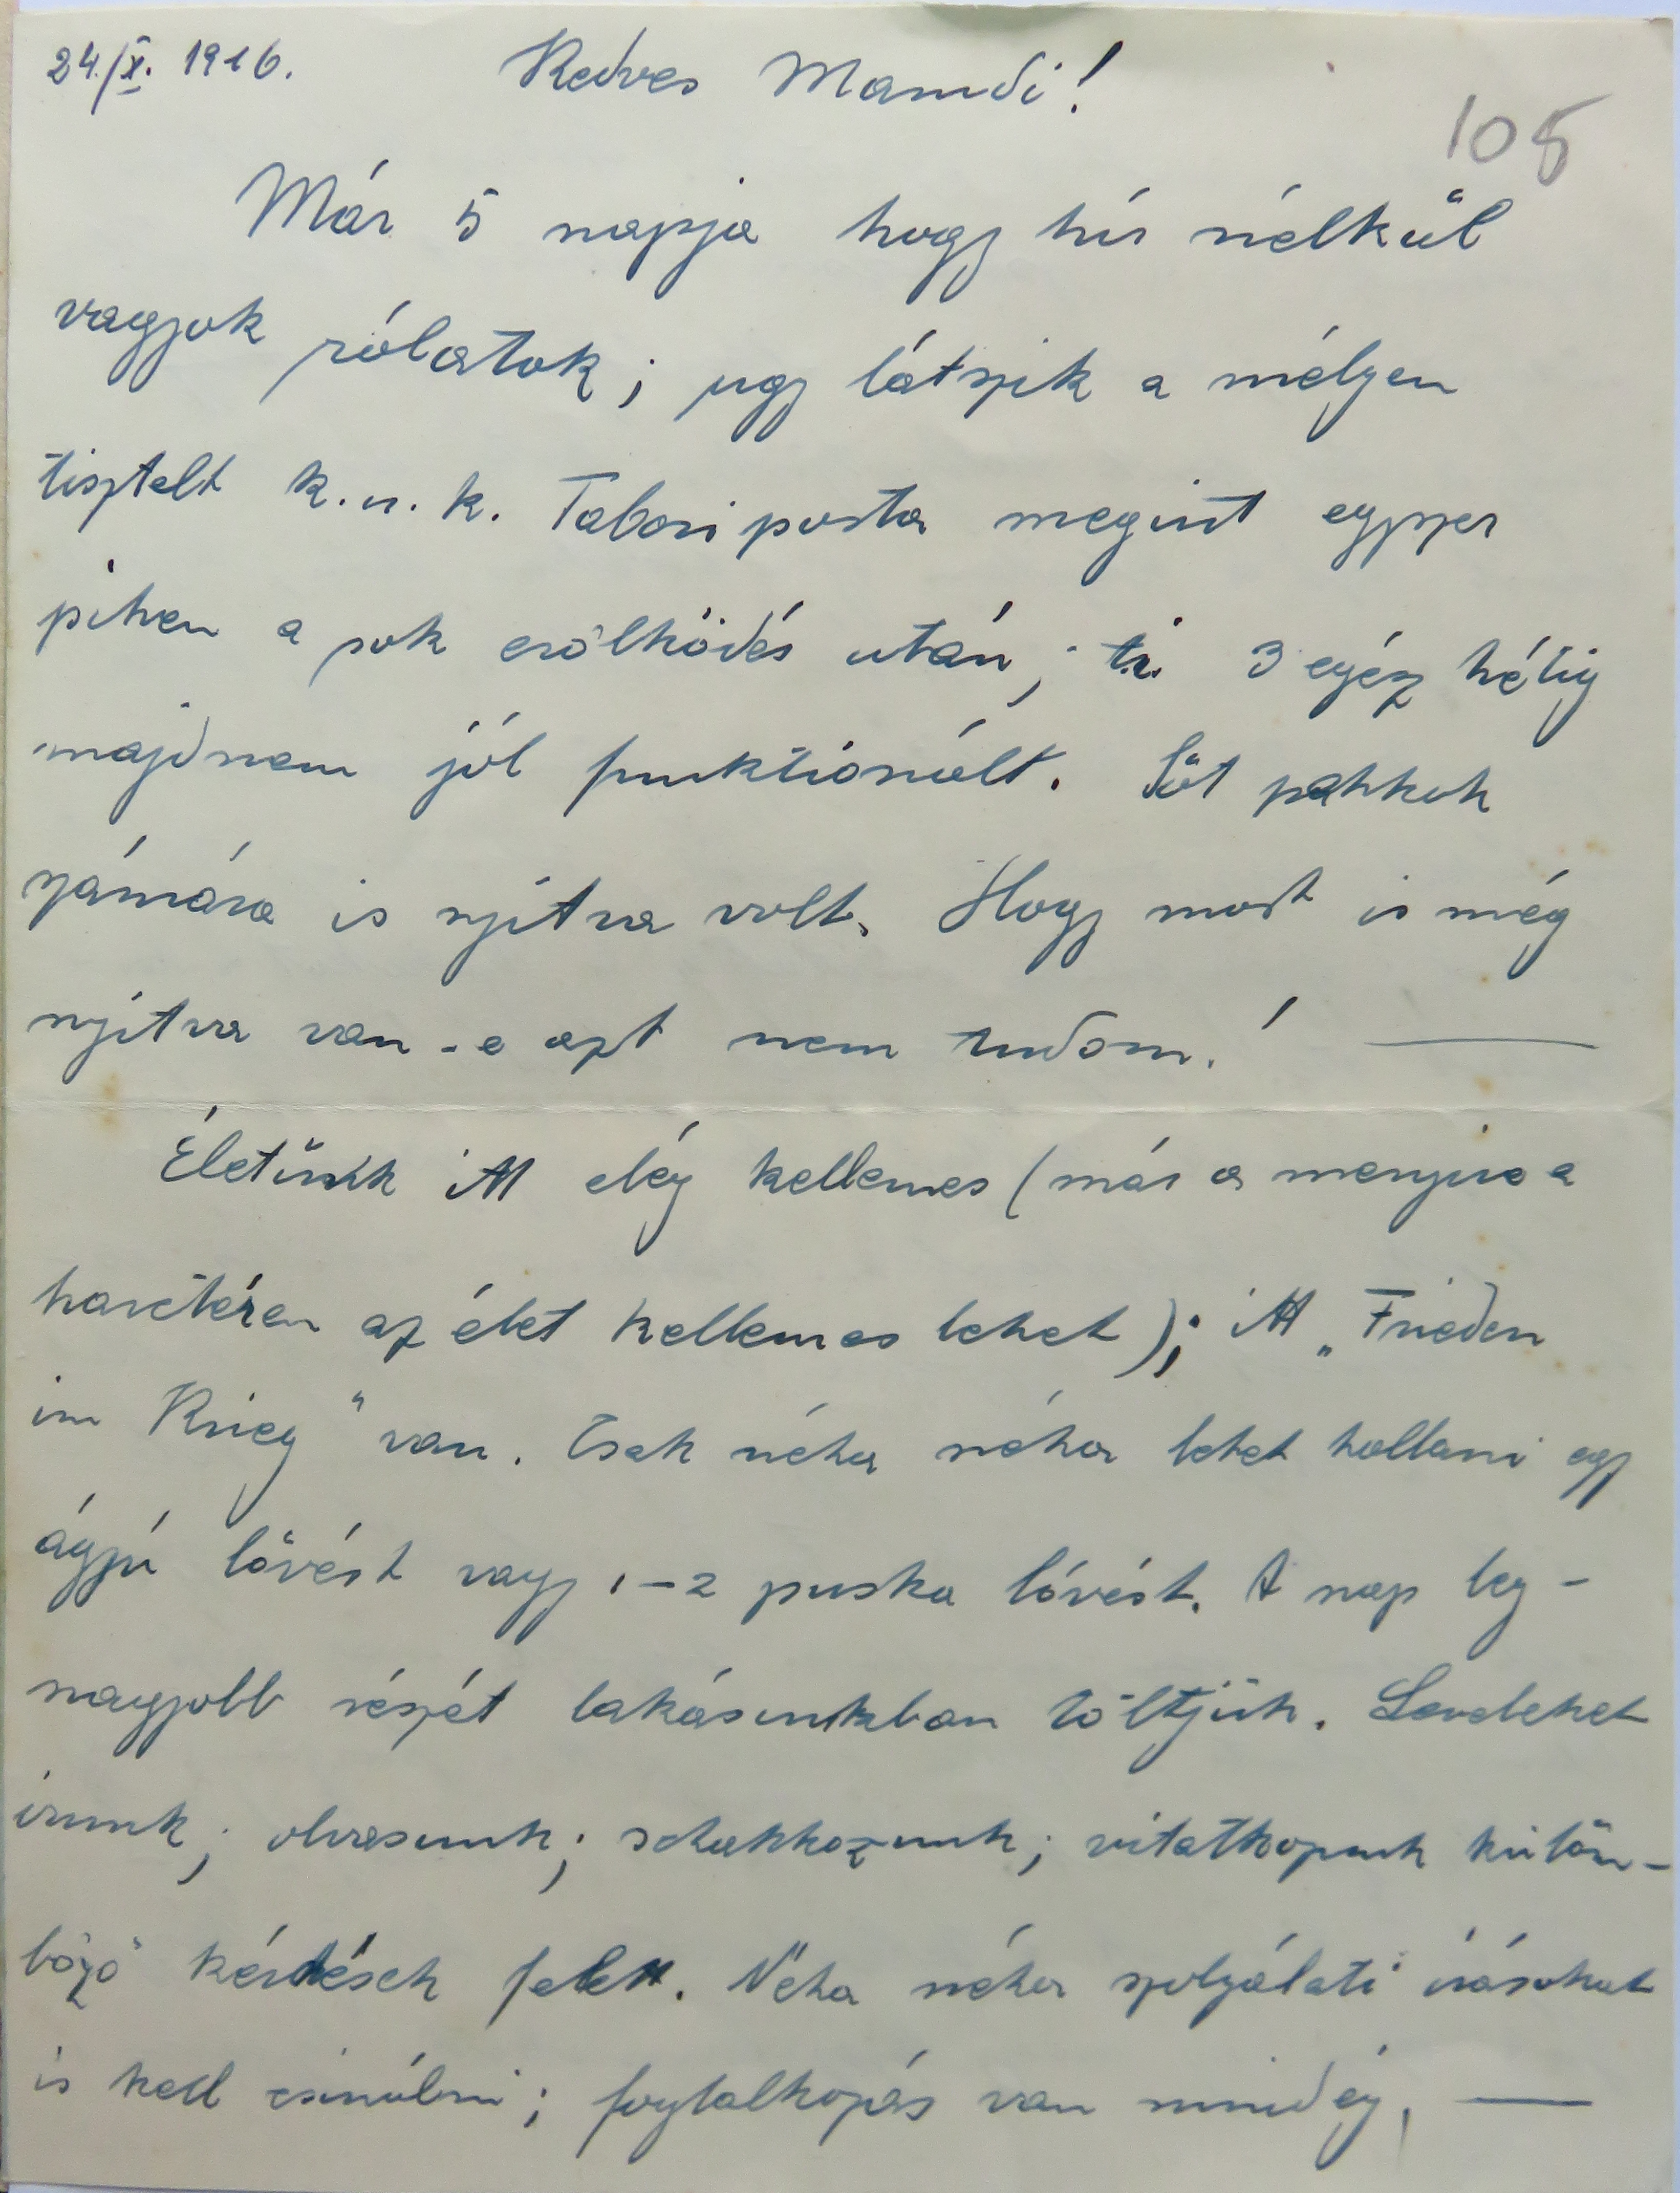 24./X. 1916.
Kedves Mamdi!
108
Már 5 napja hogy hir nélkül
vagyok rólatok; ugy látszik a mélyen
tisztelt k.u.k. Taboriposta megint egyszer
pihen a sok erőlködés után; t.i. 3 egész hétig
majdnem jól funktionált. Sőt pakkok
számára is nyitva volt. Hogy most is még
nyitva van-e azt nem tudom! —
Életünk itt elég kellemes (már a menyire a
harctéren az élet kellemes lehet); itt „Frieden
im Krieg" van. Csak néha néha lehet hallani egy
ágyú lövést vagy 1-2 puska lövést. A nap leg-
nagyobb részét lakásunkban töltjük. Leveleket
irunk; olvasunk; schakkozunk; vitatkozunk külön-
böző kérdések felett. Néha néha szolgálati irásokat
is kell csinálni; foglalkozás van mindég. —